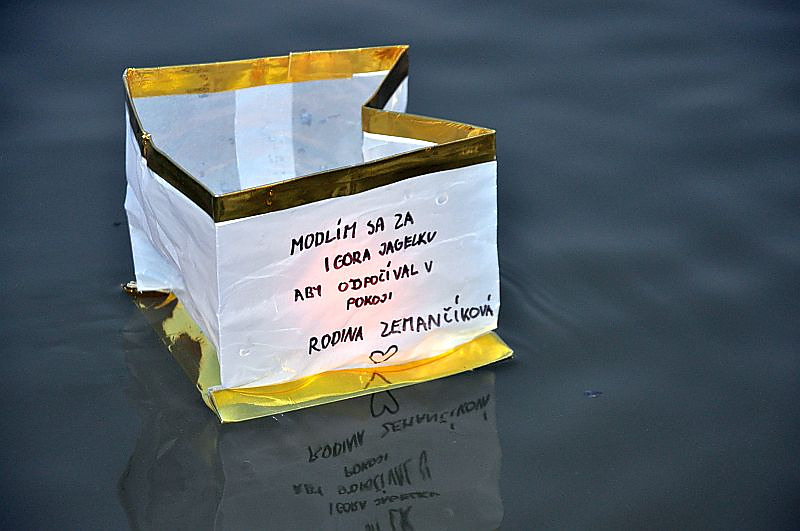 MODLÍM SA ZA
IGORA JAGELKU
ABY ODPOČÍVAL V
POKOJI
RODINA ZEMANČÍKOVÁ